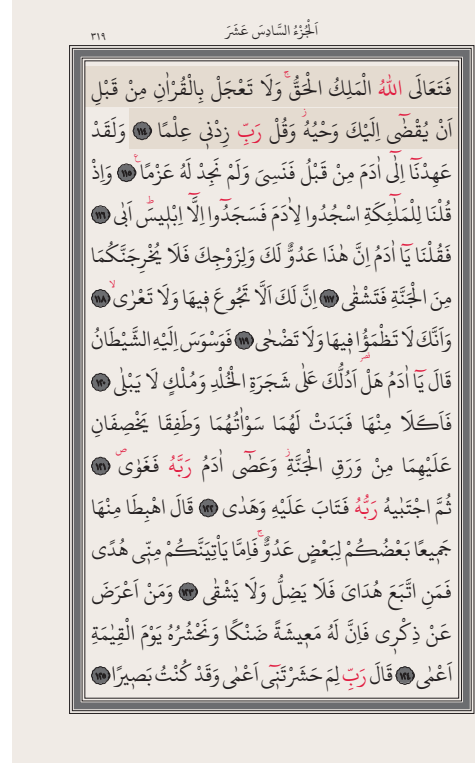 اَلْجُزْءُ السَّادِسَ عَشَرَ
٣١٩
فَتَعَالَى اللّٰهُ الْمَلِكُ الْحَقُّۚ وَلَا تَعْجَلْ بِالْقُرْاٰنِ مِنْ قَبْلِ
اَنْ يُقْضٰٓى اِلَيْكَ وَحْيُهُۘ وَقُلْ رَبِّ زِدْنٖى عِلْمًا ﴿١١٤﴾ وَلَقَدْ
عَهِدْنَٓا اِلٰٓى اٰدَمَ مِنْ قَبْلُ فَنَسِىَ وَلَمْ نَجِدْ لَهُ عَزْمًاۚ ﴿١١٥﴾ وَاِذْ
قُلْنَا لِلْمَلٰٓئِكَةِ اسْجُدُوا لِاٰدَمَ فَسَجَدُٓوا اِلَّٓا اِبْلٖيسَؕ اَبٰى ﴿١١٦﴾
فَقُلْنَا يَٓا اٰدَمُ اِنَّ هٰذَا عَدُوٌّ لَكَ وَلِزَوْجِكَ فَلَا يُخْرِجَنَّكُمَا
مِنَ الْجَنَّةِ فَتَشْقٰى ﴿١١٧﴾ اِنَّ لَكَ اَلَّا تَجُوعَ فٖيهَا وَلَا تَعْرٰىۙ ﴿١١٨﴾
وَاَنَّكَ لَا تَظْمَؤُ۬ا فٖيهَا وَلَا تَضْحٰى ﴿١١٩﴾ فَوَسْوَسَ اِلَيْهِ الشَّيْطَانُ
قَالَ يَٓا اٰدَمُ هَلْ اَدُلُّكَ عَلٰى شَجَرَةِ الْخُلْدِ وَمُلْكٍ لَا يَبْلٰى ﴿١٢٠﴾
فَاَكَلَا مِنْهَا فَبَدَتْ لَهُمَا سَوْاٰتُهُمَا وَطَفِقَا يَخْصِفَانِ
عَلَيْهِمَا مِنْ وَرَقِ الْجَنَّةِؗ وَعَصٰٓى اٰدَمُ رَبَّهُ فَغَوٰىۖ ﴿١٢١﴾
ثُمَّ اجْتَبٰيهُ رَبُّهُ فَتَابَ عَلَيْهِ وَهَدٰى ﴿١٢٢﴾ قَالَ اهْبِطَا مِنْهَا
جَمٖيعًا بَعْضُكُمْ لِبَعْضٍ عَدُوٌّۚ فَاِمَّا يَاْتِيَنَّكُمْ مِنّٖى هُدًى
فَمَنِ اتَّبَعَ هُدَاىَ فَلَا يَضِلُّ وَلَا يَشْقٰى ﴿١٢٣﴾ وَمَنْ اَعْرَضَ
عَنْ ذِكْرٖى فَاِنَّ لَهُ مَعٖيشَةً ضَنْكًا وَنَحْشُرُهُ يَوْمَ الْقِيٰمَةِ
اَعْمٰى ﴿١٢٤﴾ قَالَ رَبِّ لِمَ حَشَرْتَنٖٓى اَعْمٰى وَقَدْ كُنْتُ بَصٖيرًا ﴿١٢٥﴾